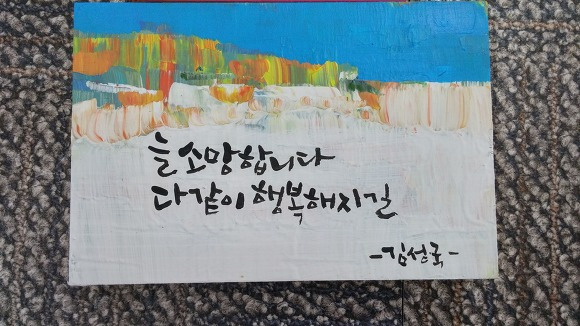 늘 소망합니다
다같이 행복해지길
-김선국-